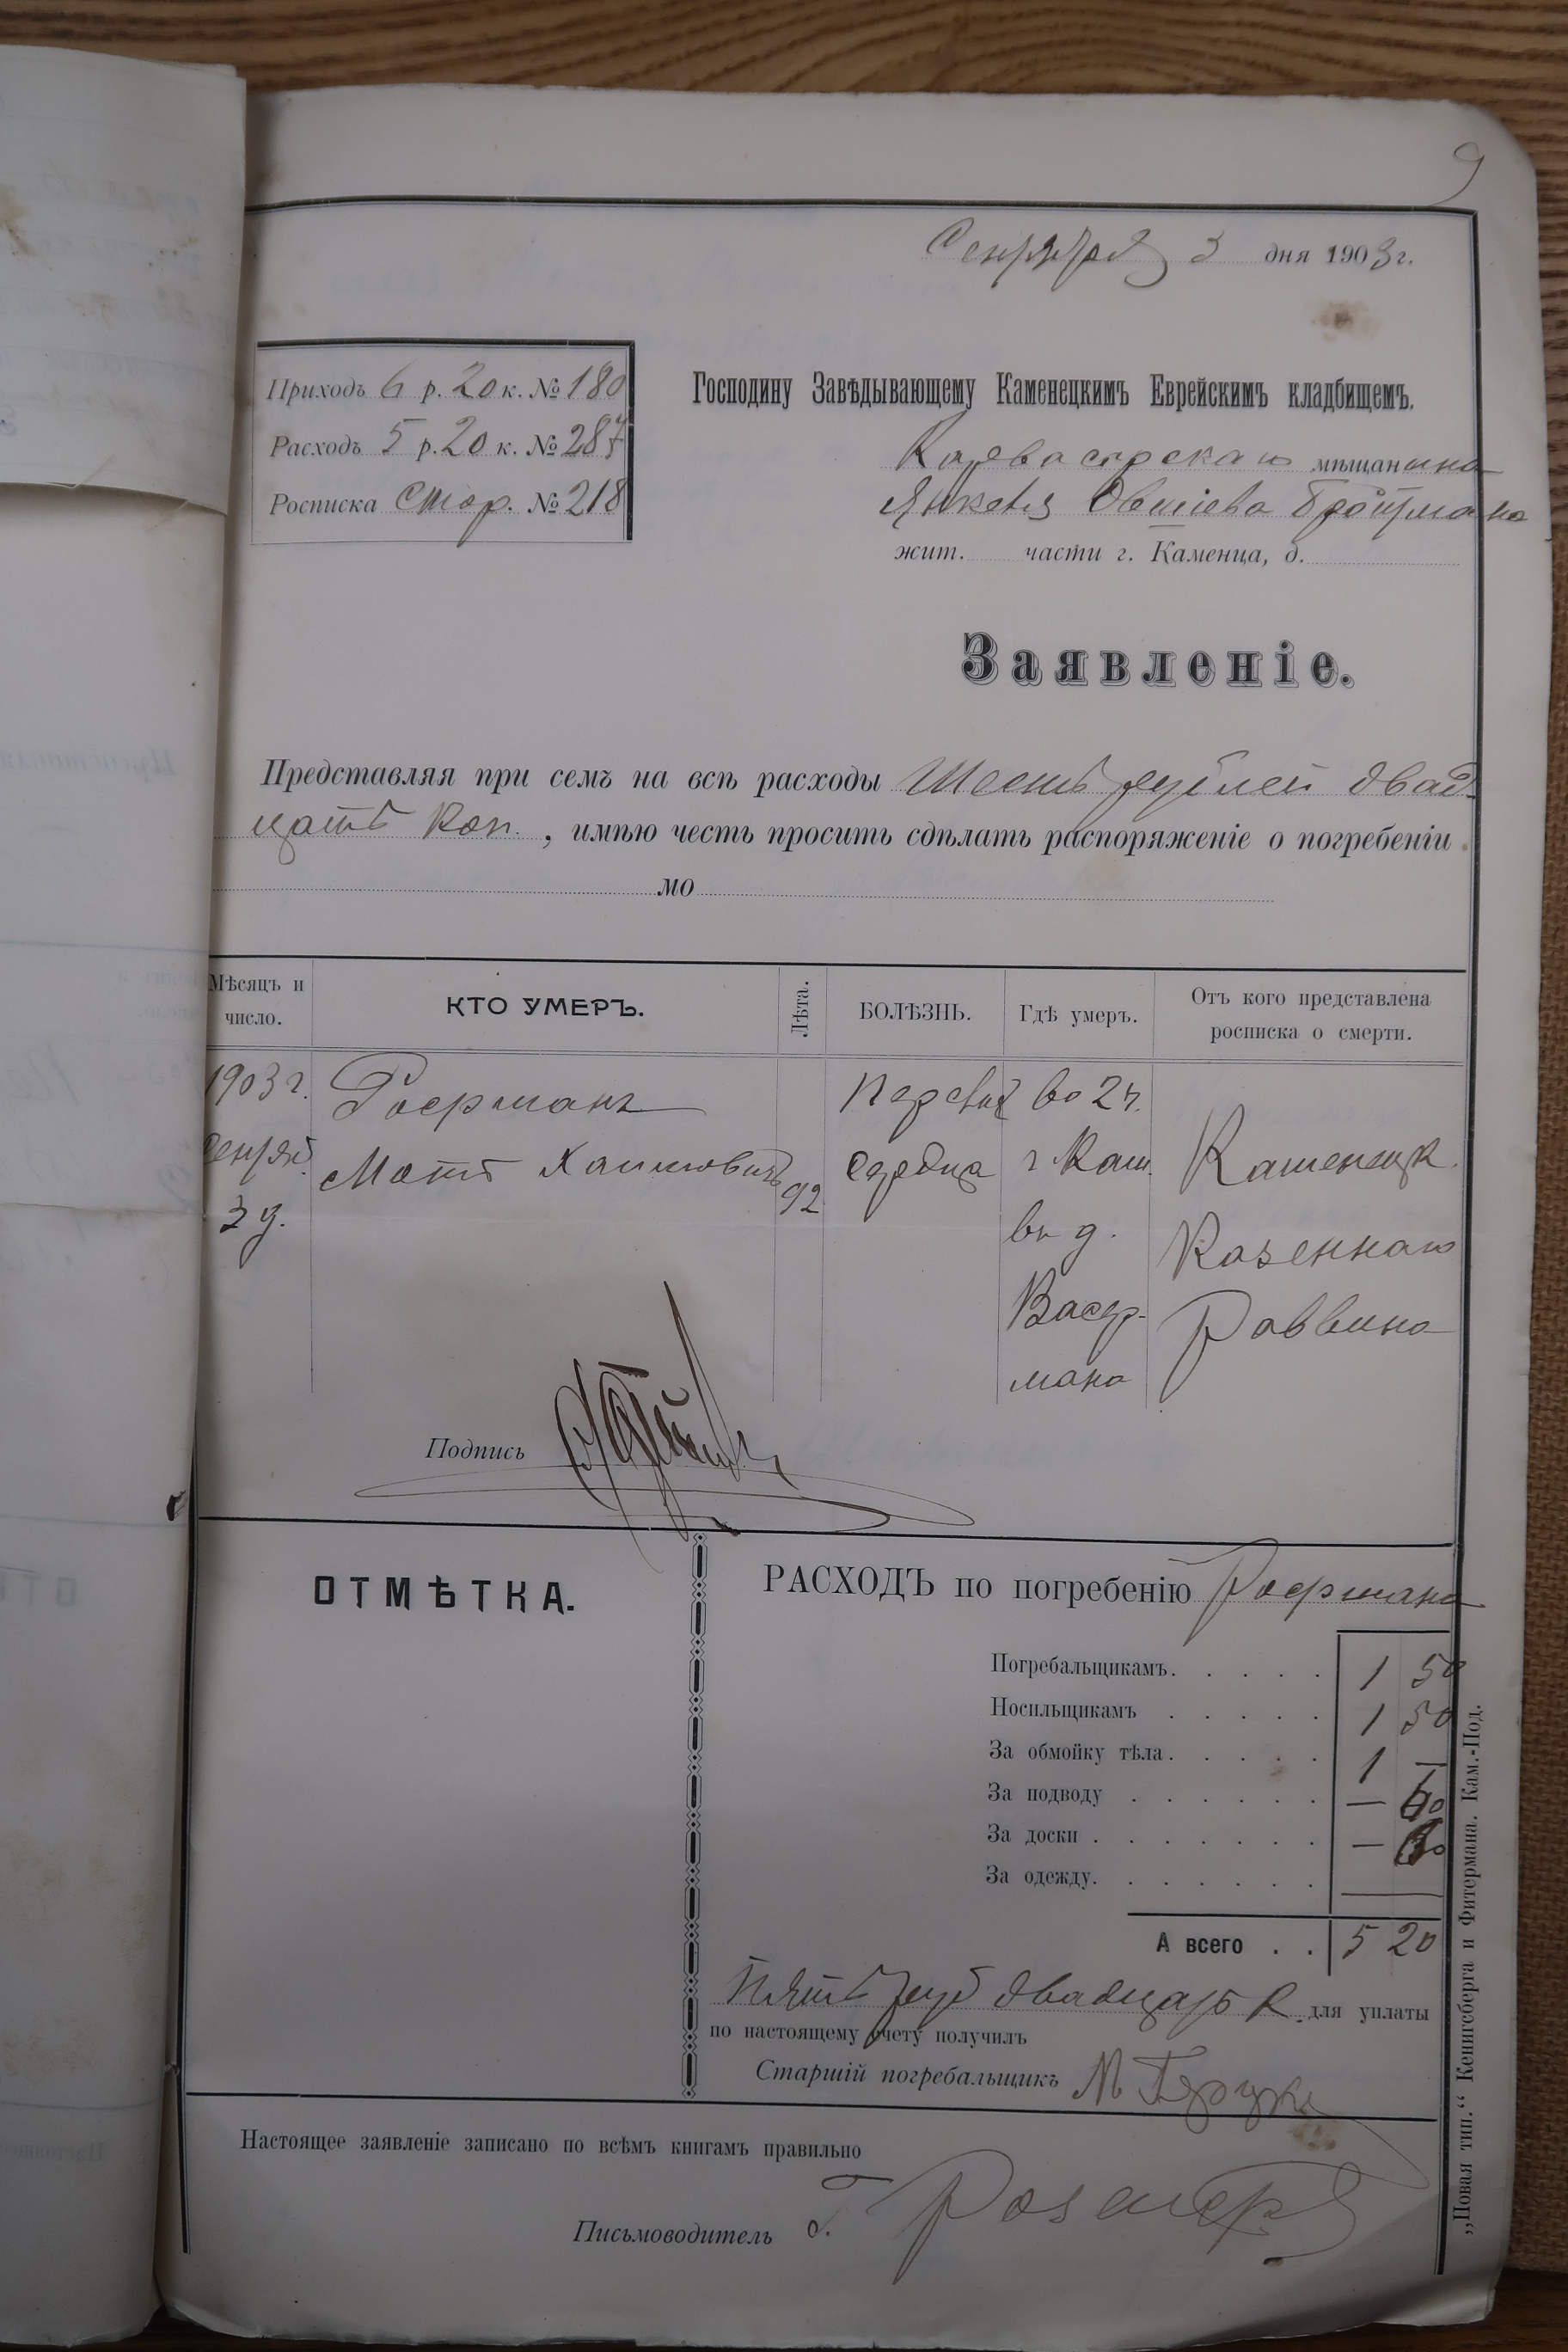 9
Сентября 3 дня 1903 г.
Приходъ 6 р. 20 к. № 180
Расходъ 5 р. 20 к. № 287
Росписка стор. № 218
Господину Завѣдывающему Каменецкимъ Еврейскимъ кладбищемъ.
мѣщанина
Янкеля Овшіева Бройтмана
жит. части г. Каменца, д.
Заявленіе.
Представляя при семъ на всѣ расходы Шесть рублей двад-
цать коп., имѣю честь просить сдѣлать распоряженіе о погребеніи
мо
Мѣсяцъ и число.
КТО УМЕРЪ.
Лѣта.
БОЛѢЗНЬ.
Гдѣ умеръ.
Отъ кого представлена росписка о смерти.
1903 г. Сентяб. 3 д.
Мотъ Хаимовичъ
92
сердца
во 2 ч. г Кам. въ д. Васер-мана
Каменецк. Казеннаго Раввина
Подпись
ОТМѢТКА.
РАСХОДЪ по погребенію
Погребальщикамъ. 1 50
Носильщикамъ 1 50
За обмойку тѣла. 1 —
За подводу — 60
За доски . — 60
За одежду.
А всего . . 5 20
Пять руб двадцать к. для уплаты
по настоящему счету получилъ
Старшій погребальщикъ М
Настоящее заявленіе записано по всѣмъ книгамъ правильно
Письмоводитель
„Новая тип.“ Кенигсберга и Фитермана. Кам.-Под.